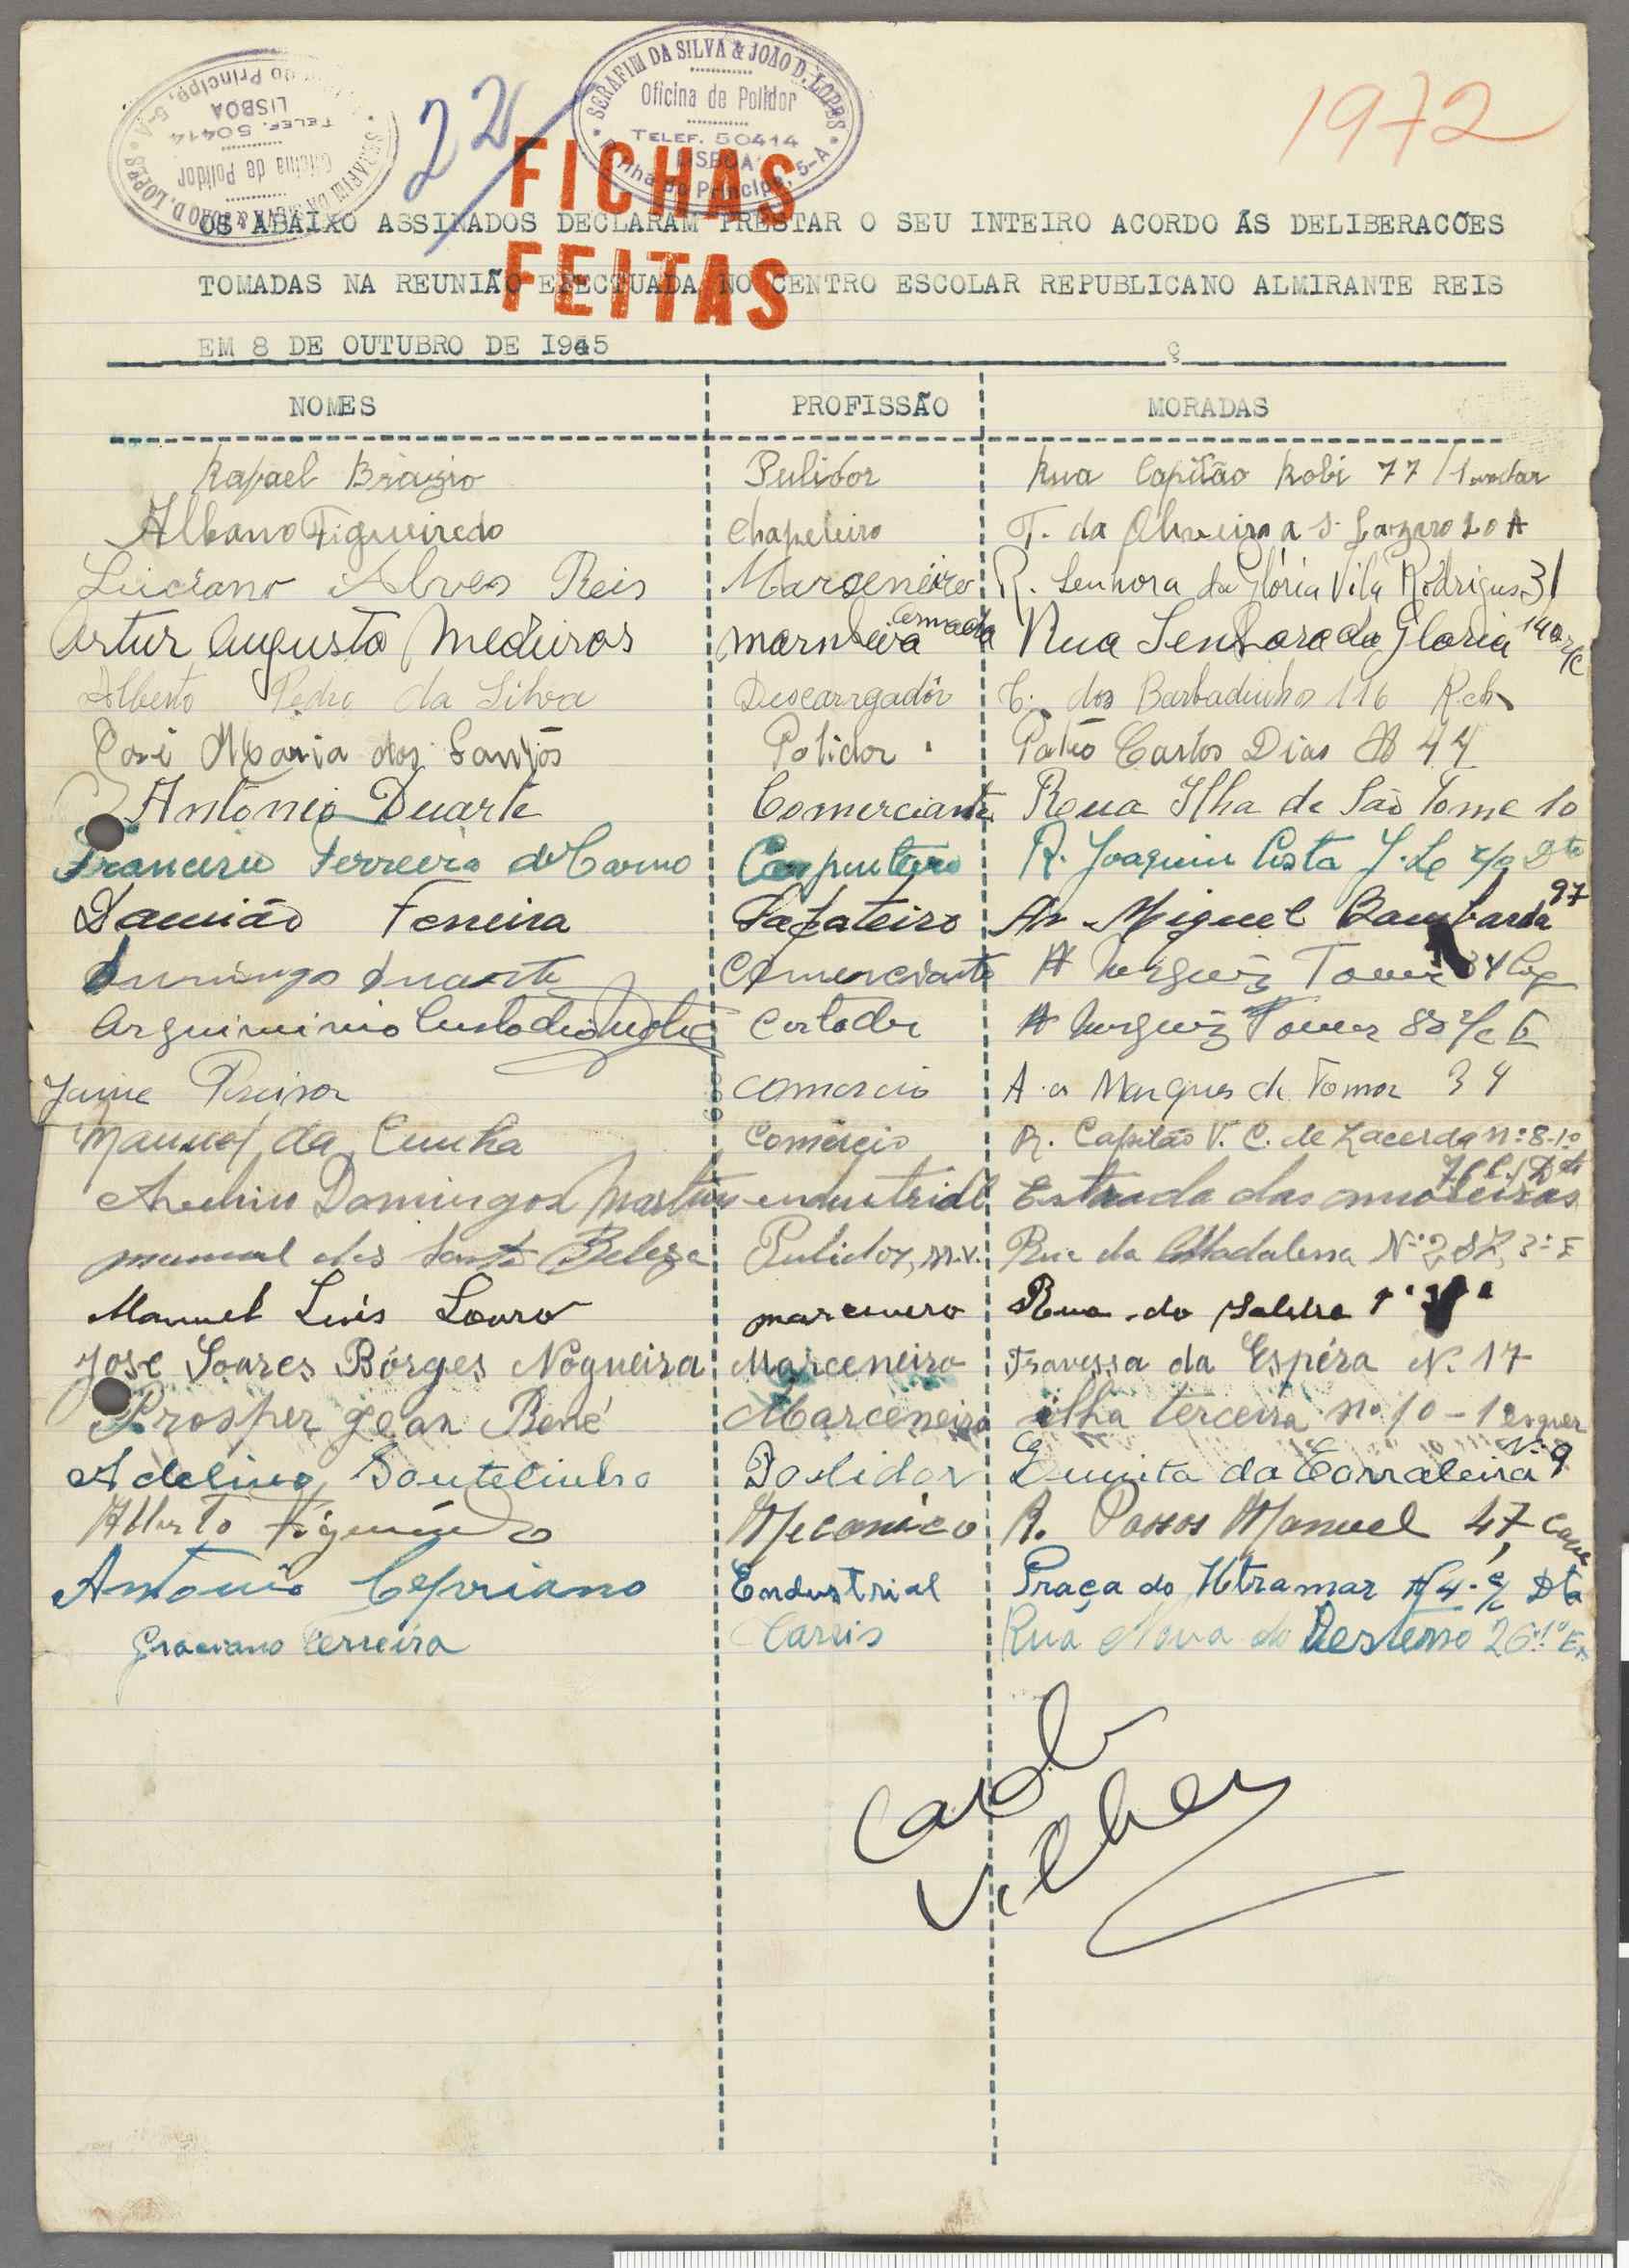 SERAFIM DA SILVA & JOÃO D. LOPES
Oficina de Polidor
TELEF. 50414
LISBOA
SERAFIM DA SILVA & JOÃO D. LOPES
Oficina de Polidor
TELEF. 50414
LISBOA
do Principe, 5-A
22
1972
FICHAS
FEITAS
OS ABAIXO ASSINADOS DECLARAM PRESTAR O SEU INTEIRO ACORDO ÁS DELIBERACÕES
TOMADAS NA REUNIÃO EFECTUADA NO CENTRO ESCOLAR REPUBLICANO ALMIRANTE REIS
EM 8 DE OUTUBRO DE 1945 ç
NOMES PROFISSÃO MORADAS
Rafael Brazio Pulidor Rua Capitão Robi 77 / 1
Albano Figueiredo Chapeleiro T. da Oliveira a S. Lazaro 20 A
Luciano Alves Reis Marceneiro R. Senhora da Glória Vila Rodrigues 31
Artur Augusto Medeiros Rua Senhora da Gloria 140 r/c
Alberto Pedro da Silva Descarrgadôr C. dos Barbadinhos 116 R.ch
José Maria dos Santos Polidor Patio Carlos Dias 44
António Duarte Comerciante Roua Ilha de São Tome 10
Francisco Ferreira do Carmo Carpinteiro R. Joaquim Costa r/c Dto
Damião Ferreira Sapateiro Av. Miguel Bombarda 97
Domingos Duarte Comerciante 34
Custodio Cortador Tomar r/c E
Jaime Pereira Comercio Marques de Tomar 34
Manuel da Cunha Comércio R. Capitão V. C. de Lacerda nº 8-1º
Avelino Domingos Martins industrial Estrada das amoreiras
manuel dos Santos Beleza Pulidor, M.V. Rua da Madalena Nº 287, 3º E
Manuel Luís Louro marceneiro Rua do Salitre
José Soares Bórges Nogueira Marceneiro Travessa da Espéra N. 17
Prosper Jean René Marceneiro ilha terceira nº 10 - 1 esquer
Adelino Soutelinho Polidor Quinta da Corraleira Nº 9
Alberto Figueiredo Mecanico R. Passos Manuel 47, cave
António Cepriano Endustrial Praça do Utramar Nº 4 r/c Dto
Graciano Cerreira Carris Rua Nova do Desterro 26 1º E.